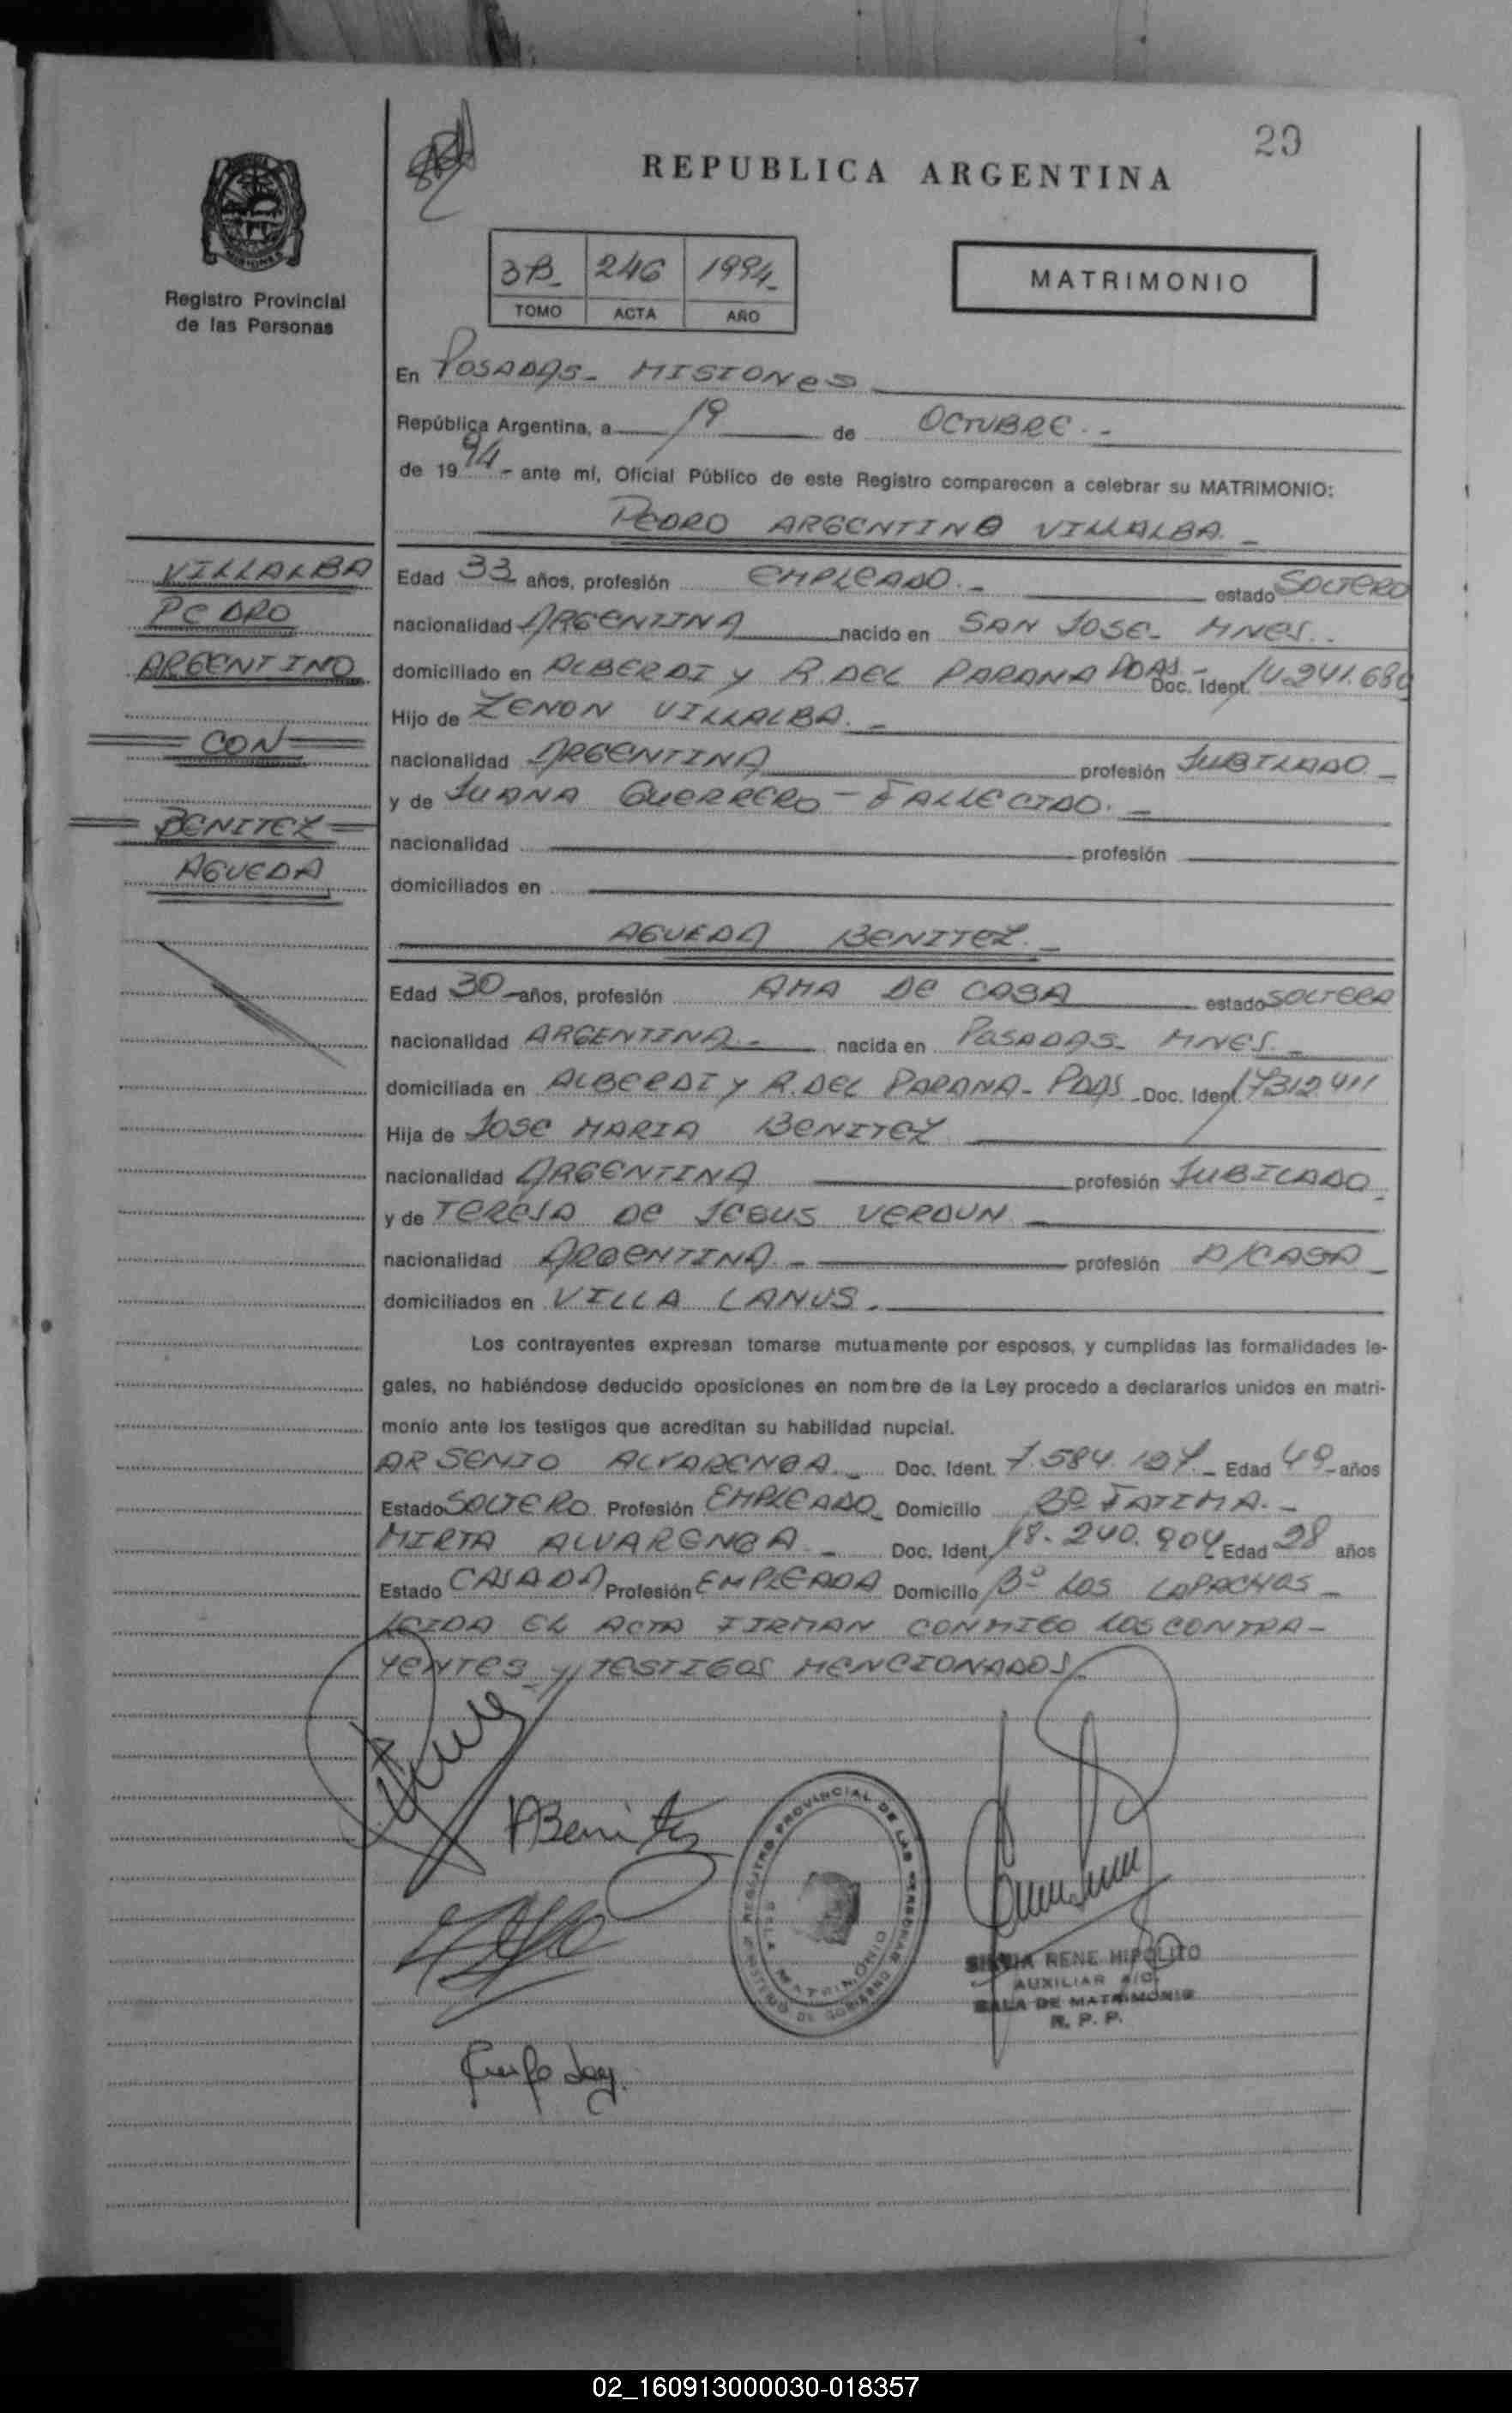 23
REPUBLICA ARGENTINA
MISIONES
Registro Provincial
de las Personas
3B 246 1994
TOMO ACTA AÑO
MATRIMONIO
En POSADAS - MISIONES
República Argentina, a 19 de OCTUBRE.-
de 1994 - ante mí, Oficial Público de este Registro comparecen a celebrar su MATRIMONIO:
PEDRO ARGENTINO VILLALBA.-
VILLALBA
PEDRO
ARGENTINO
CON
BENITEZ
AGUEDA
Edad 33 años, profesión EMPLEADO.- estado SOLTERO
nacionalidad ARGENTINA nacido en SAN JOSE - MNES..
domiciliado en ALBERDI Y R. DEL PARANA PDAS.- Doc. Ident. 14.241.680
Hijo de ZENON VILLALBA.-
nacionalidad ARGENTINA profesión JUBILADO -
y de JUANA GUERRERO - FALLECIDO.-
nacionalidad profesión
domiciliados en
AGUEDA BENITEZ.-
Edad 30 - años, profesión AMA DE CASA estado SOLTERA
nacionalidad ARGENTINA.- nacida en POSADAS - MNES.-
domiciliada en ALBERDI Y R. DEL PARANA - PDAS - Doc. Ident. 17312.411
Hija de JOSE MARIA BENITEZ
nacionalidad ARGENTINA profesión JUBILADO
y de TERESA DE JESUS VERDUN
nacionalidad ARGENTINA.- profesión A/CASA -
domiciliados en VILLA LANUS.
Los contrayentes expresan tomarse mutuamente por esposos, y cumplidas las formalidades le-
gales, no habiéndose deducido oposiciones en nombre de la Ley procedo a declararlos unidos en matri-
monio ante los testigos que acreditan su habilidad nupcial.
ARSENIO ALVARENGA.- Doc. Ident. 7.584.127.- Edad 49 - años
Estado SOLTERO Profesión EMPLEADO Domicilio Bº FATIMA.-
MIRTA ALVARENGA - Doc. Ident. 18.240.904 Edad 28 años
Estado CASADA Profesión EMPLEADA Domicilio Bº LOS LAPACHOS -
LEIDA EL ACTA FIRMAN CONMIGO LOS CONTRA-
YENTES y TESTIGOS MENCIONADOS
ABenitez
REGISTRO PROVINCIAL DE LAS PERSONAS
MINISTERIO DE GOBIERNO
SALA MATRIMONIO
SILVIA RENE HIPOLITO
AUXILIAR A/C.
SALA DE MATRIMONIO
R. P. P.
02_160913000030-018357